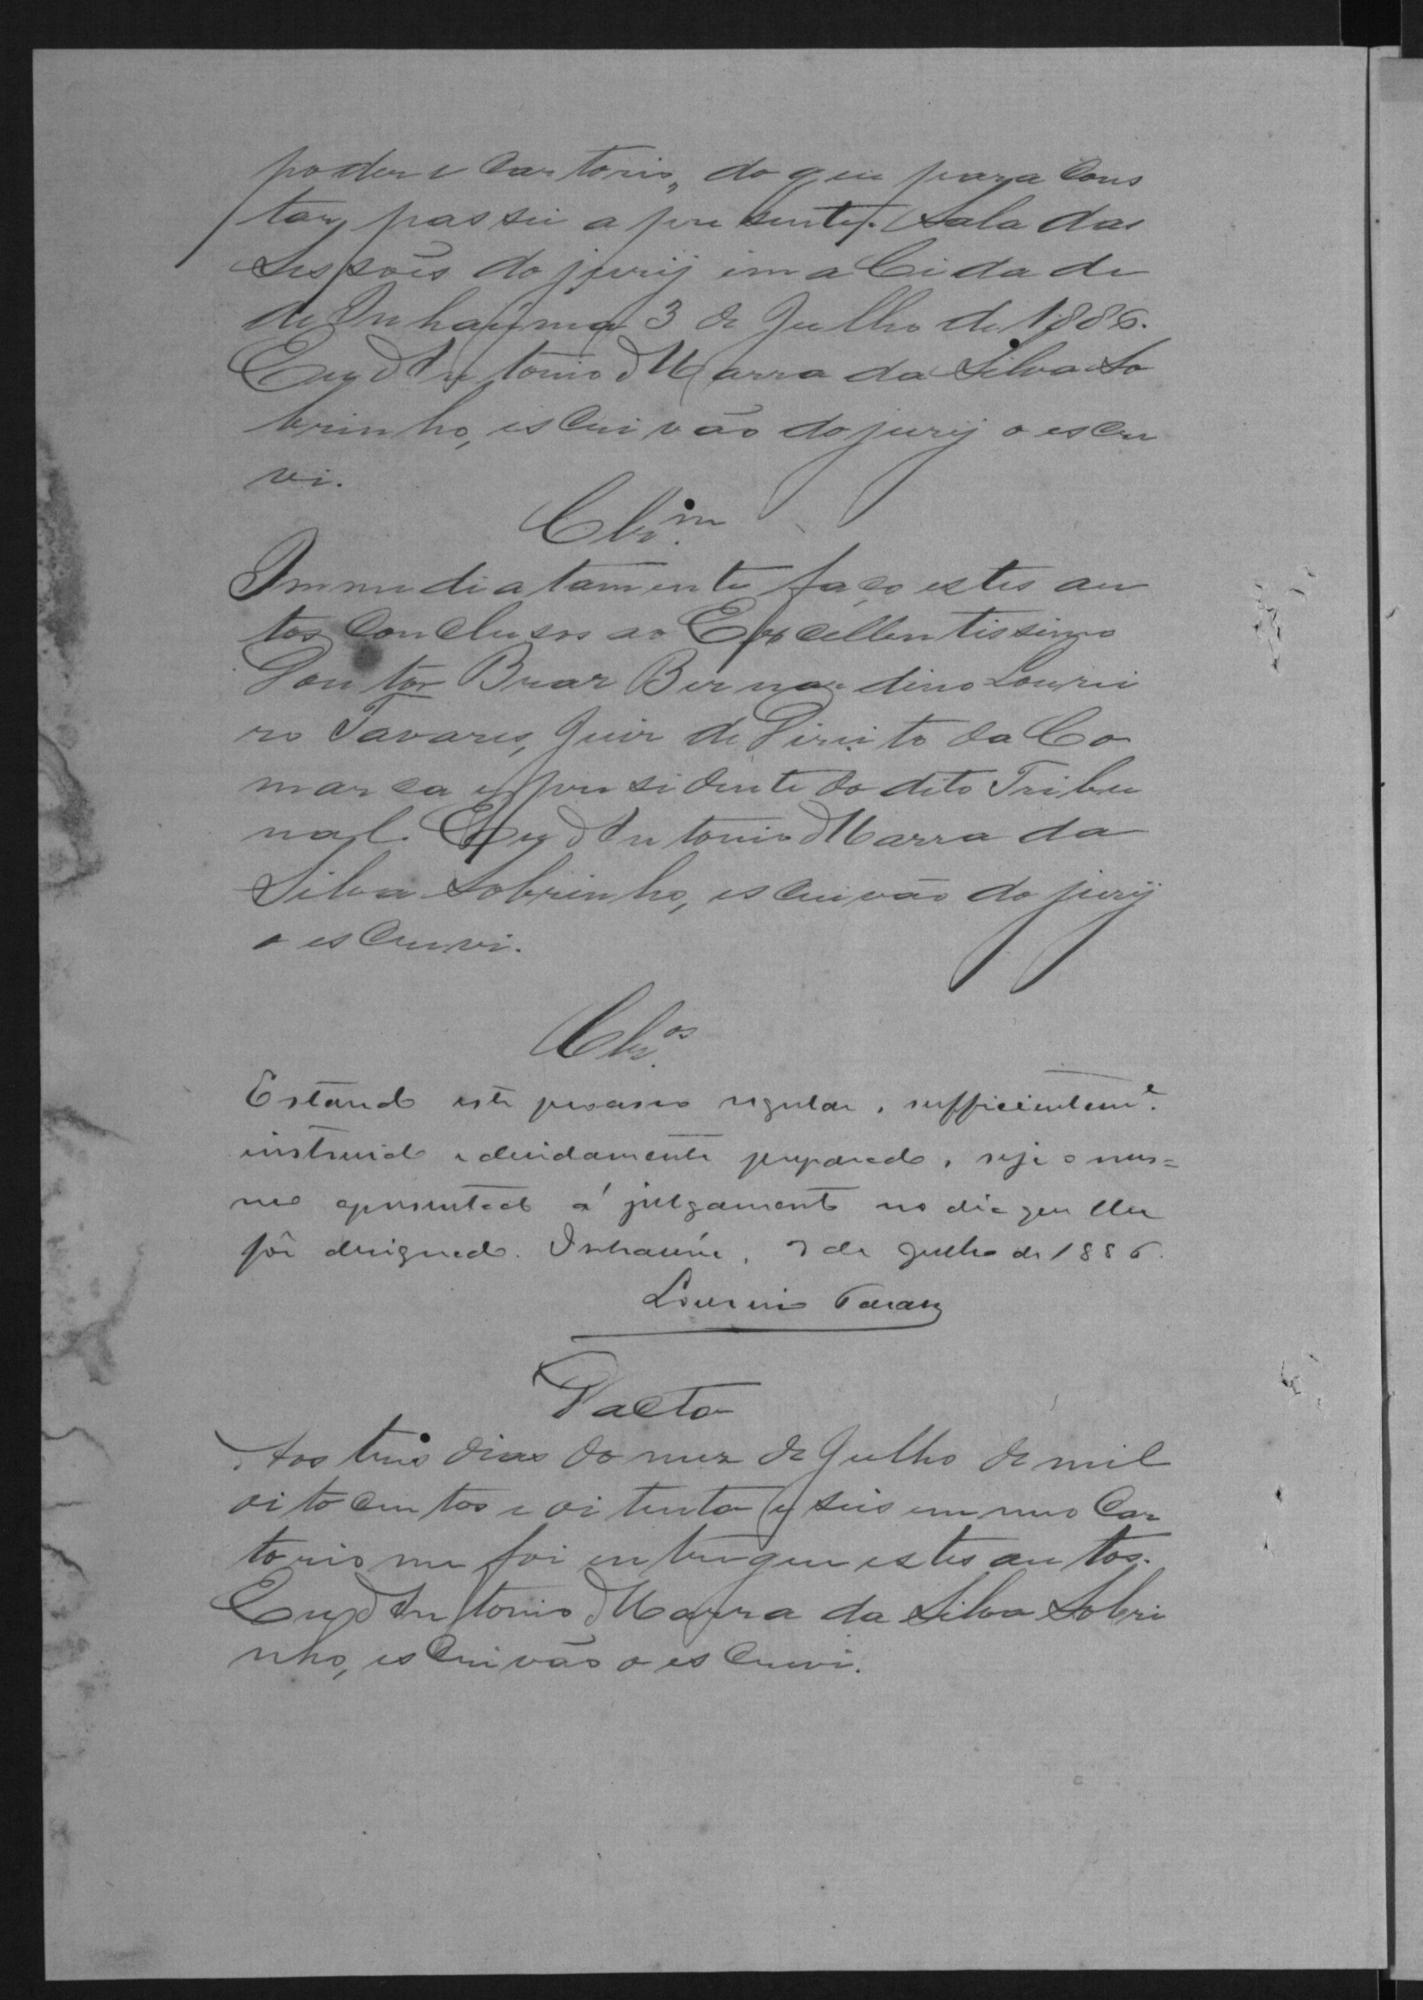 poder e Cartorio, do que para Cons
tar, passei a presente. Sala das
Sessões do jury em a Cidade
de Inhaúma 3 de Julho de 1886.
Eu, Antonio Marra da Silva So
brinho, escrivão do jury o escre
vi.
Cls.m
Immediatamente faço estes au
tos Conclusos ao Excellentissimo
Doutor Bernardino Lourei
ro Tavares, Juiz de Direito da Co
marca e presidente do dito Tribu
nal. Eu, Antonio Marra da
Silva Sobrinho, escrivão do jury
o escrevi.
Cls.os
Estando este processo regular, sufficientem.e
instruido e devidamente preparado, seja o mes=
mo apresentado á julgamento no dia que lhe
fôr designado. Inhaúma, 3 de Julho de 1886.
Loureiro Tavares
Dacta
Aos tres dias do mez de Julho de mil
oitocentos e oitenta e seis em meo Car
torio me foi entregue estes autos.
Eu, Antonio Marra da Silva Sobri
nho, escrivão o escrevi.